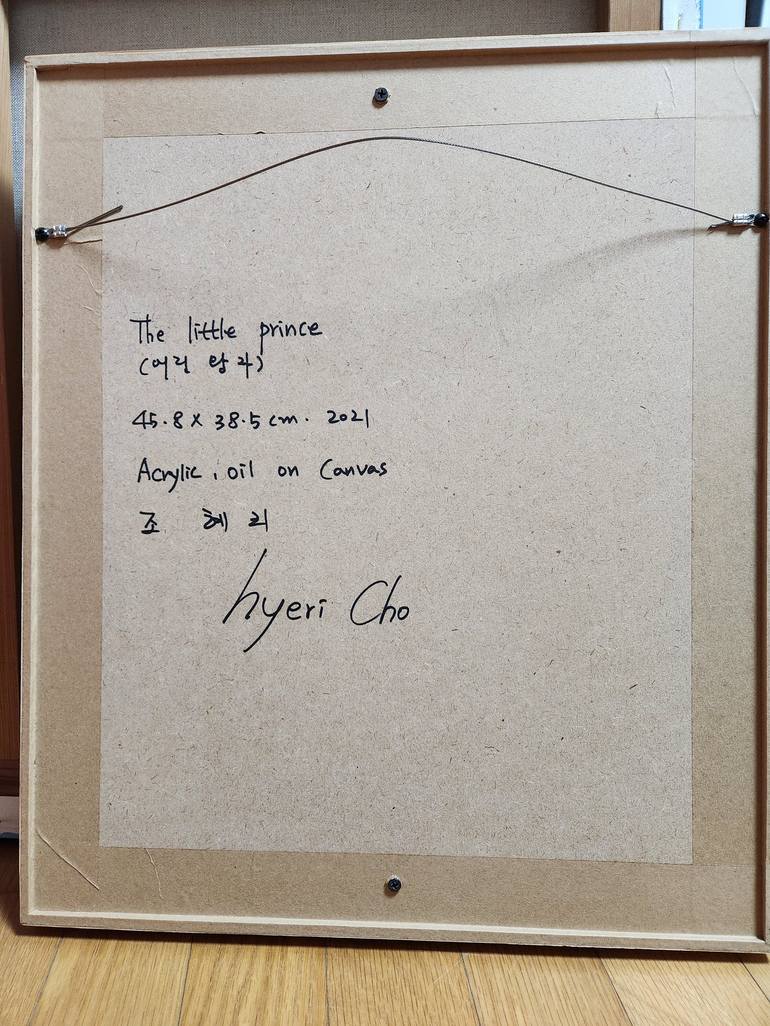 The little prince
(어린 왕자)
45.8 x 38.5 cm. 2021
Acrylic, oil on Canvas
조 혜 리
hyeri Cho